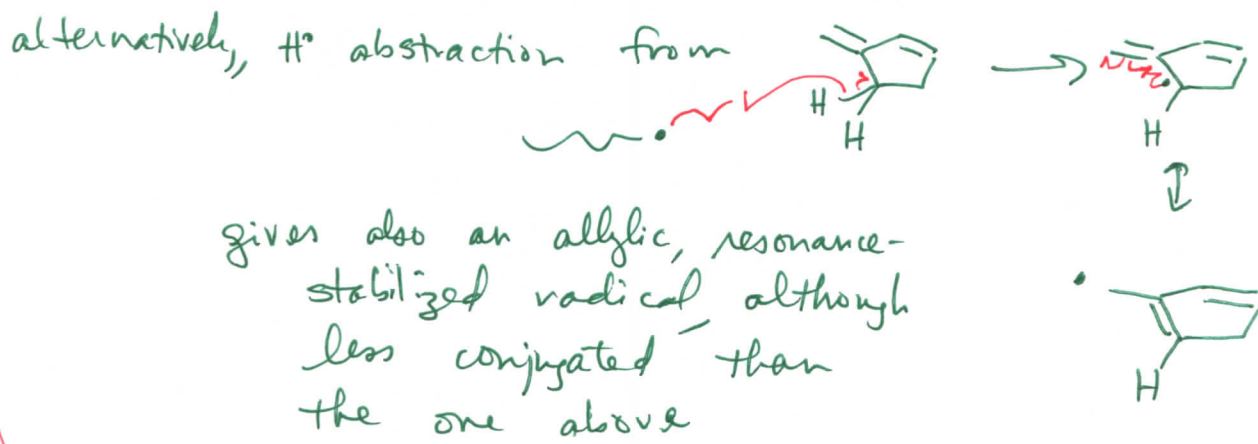 alternatively, H• abstraction from
H
H
H
gives also an allylic, resonance-
stabilized radical, although
less conjugated than
H
the one above